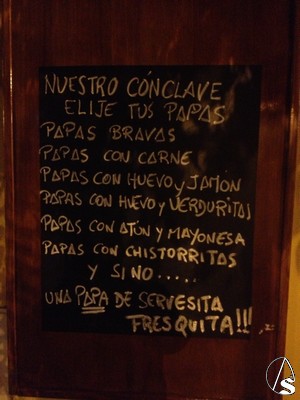 NUESTRO CÓNCLAVE
ELIJE TUS PAPAS
PAPAS BRAVAS
PAPAS CON CARNE
PAPAS CON HUEVO y JAMÓN
PAPAS CON HUEVO y VERDURITAS
PAPAS CON ATÚN y MAYONESA
PAPAS CON CHISTORRITAS
Y SI NO.....
UNA PAPA DE SERVESITA
FRESQUITA!!!